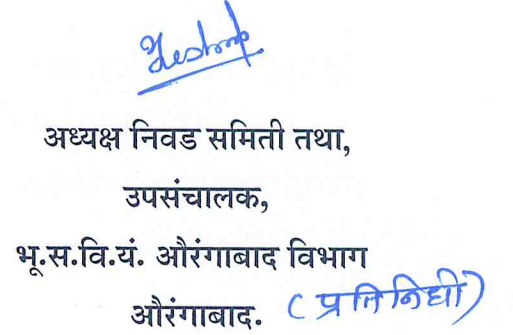 अध्यक्ष निवड समिती तथा,
उपसंचालक,
भू.स.वि.यं. औरंगाबाद विभाग
औरंगाबाद. (प्रतिनिधी)